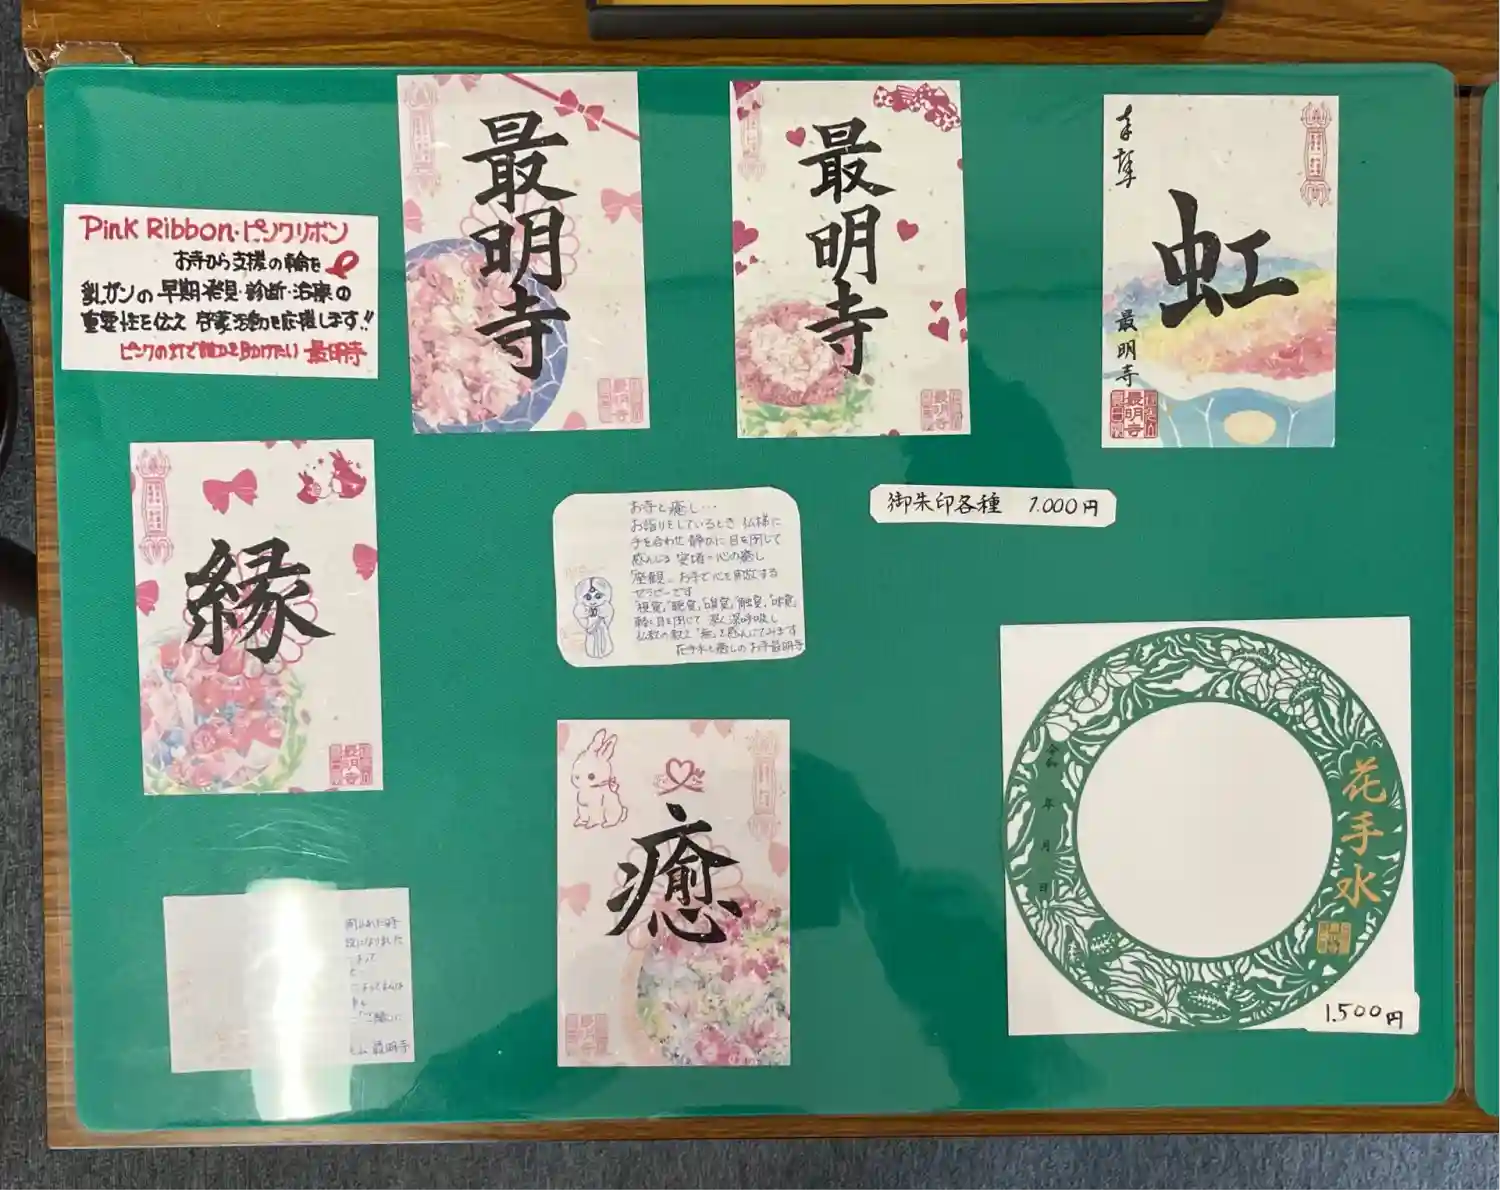 Pink Ribbon・ピンクリボン
お寺から支援の輪を
乳ガンの早期発見・診断・治療の
重要性を伝え 啓蒙活動を応援します!!
ピンクの灯で 助けたい 最明寺
最明寺
最明寺
最明寺
最明寺
奉拝
虹
最明寺
最明寺
縁
最明寺
お寺と癒し…
お詣りをしているとき 仏様に
手を合わせ 静かに 目を閉じて
感じる 安堵=心の癒し
お寺で心を解放する
セラピーです
「視覚」「聴覚」「嗅覚」「触覚」「味覚」
軽く目を閉じて 深く深呼吸し
仏教の教え「無」を感じてみます
花手水と癒しのお寺最明寺
御朱印各種 1.000円
癒
最明寺
になりました
最明寺
花手水
令和 年 月 日
1.500円